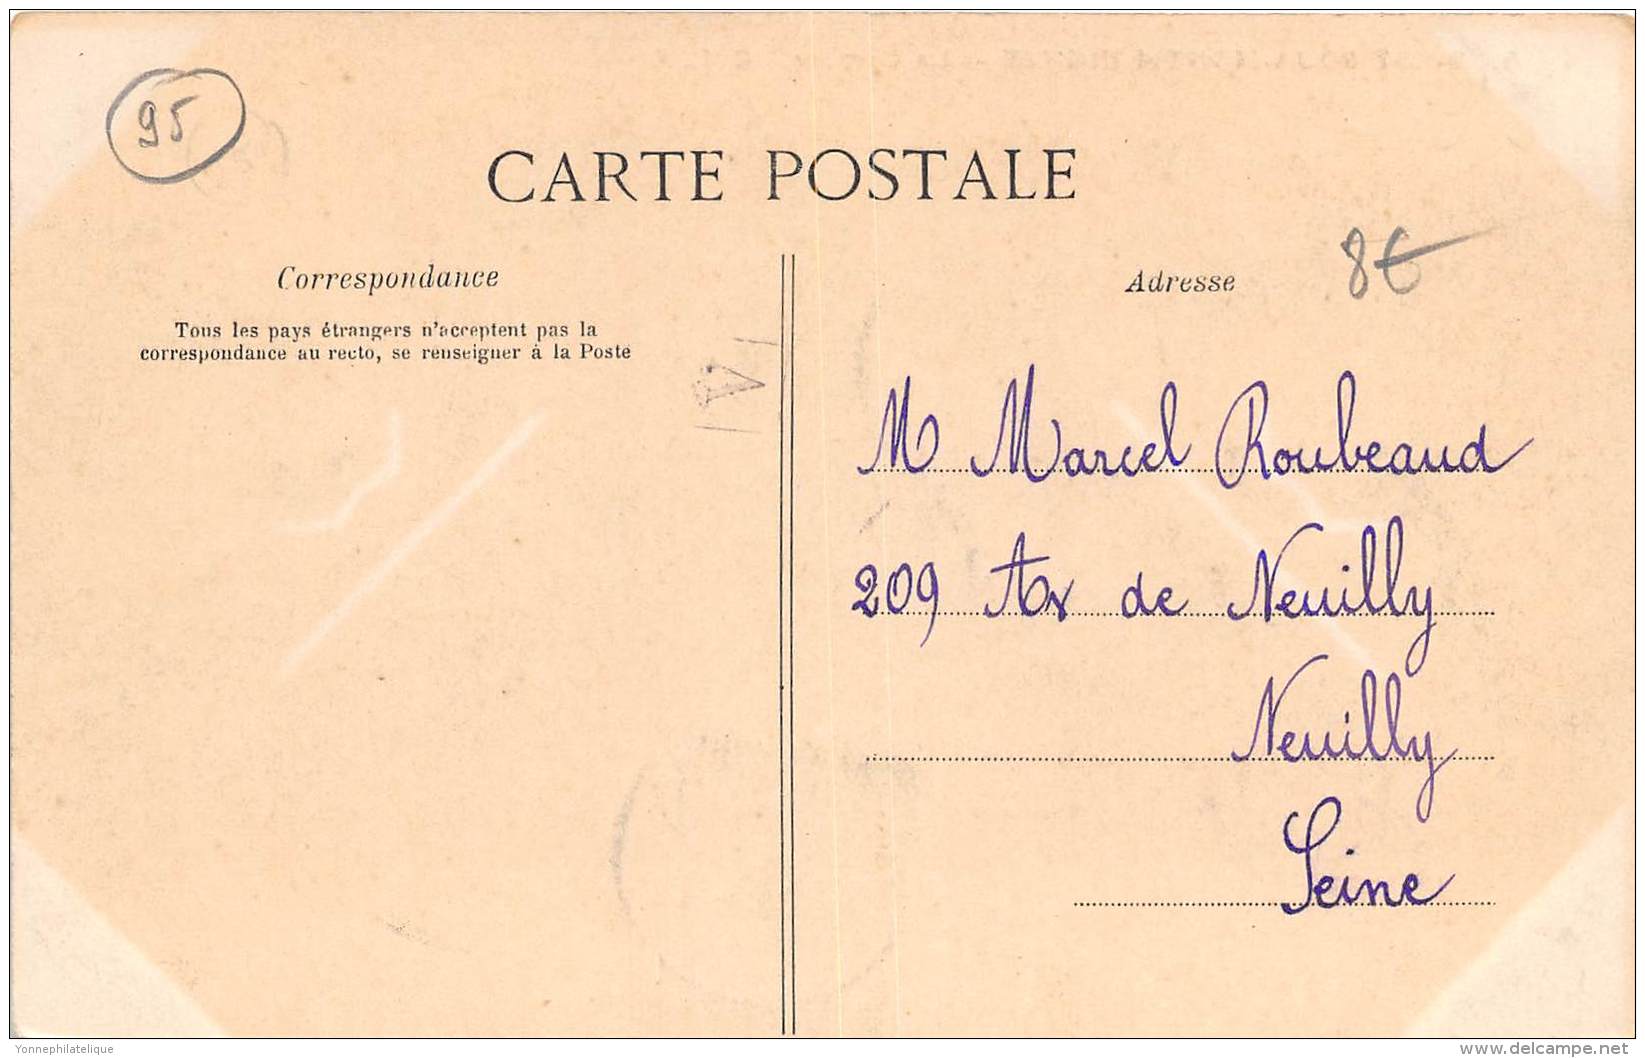 95
CARTE POSTALE
Correspondance
Tous les pays étrangers n'acceptent pas la
correspondance au recto, se renseigner à la Poste
Adresse
8€
M Marcel Roubeaud
209 Av de Neuilly
Neuilly
Seine
Yonnephilatelique
delcampe.net